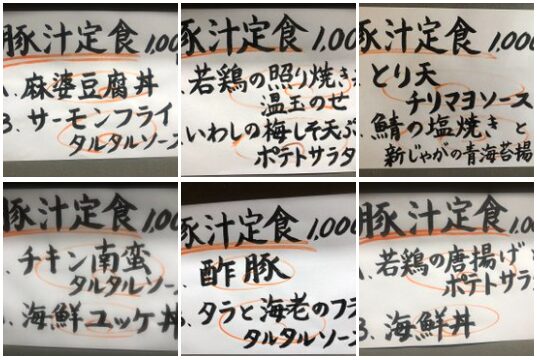 豚汁定食 1,00
麻婆豆腐丼
3、サーモンフライ
タルタルソース
豚汁定食 1,00
若鶏の照り焼き
温玉のせ
いわしの梅しそ天ぷ
ポテトサラダ
豚汁定食 1,000
とり天
チリマヨソース
鯖の塩焼きと
新じゃがの青海苔揚
豚汁定食 1,00
チキン南蛮
タルタルソー
海鮮ユッケ丼
豚汁定食 1,000
酢豚
タラと海老のフラ
タルタルソース
豚汁定食 1,00
若鶏の唐揚げ
ポテトサラ
3、海鮮丼